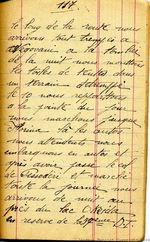 167
le long de la route nous
arrivons tout trempés a
a la tombée
de la nuit nous montons
les toiles de tentes dans
un terrain détrempé
et le nous repartons
a la pointe du jour
nous marchons jusque
la les autos
nous attendent nous
embarquons en autos et
après avoir passé
et marché
toute la journée nous
arrivons de nuit au
près du lac Okrida
en reserve de